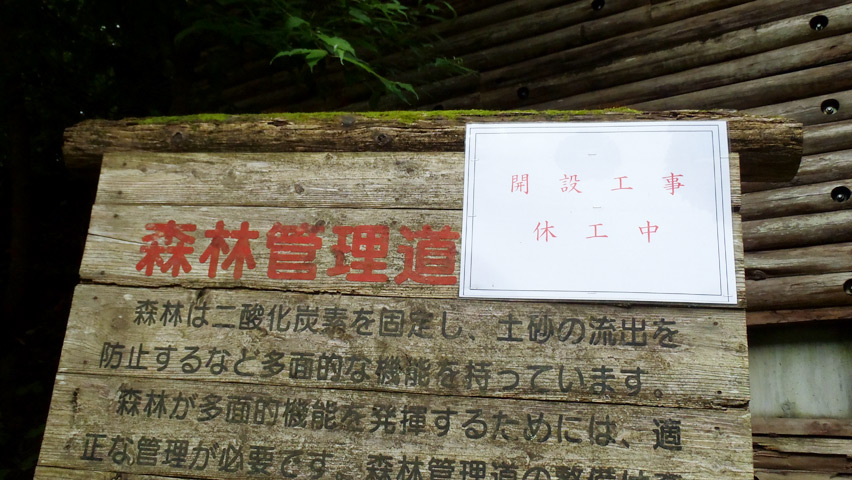 開設工事
休工中
森林管理道
森林は二酸化炭素を固定し、土砂の流出を
防止するなど多面的な機能を持っています。
森林が多面的機能を発揮するためには、適
正な管理が必要です。森林管理道の整備は森